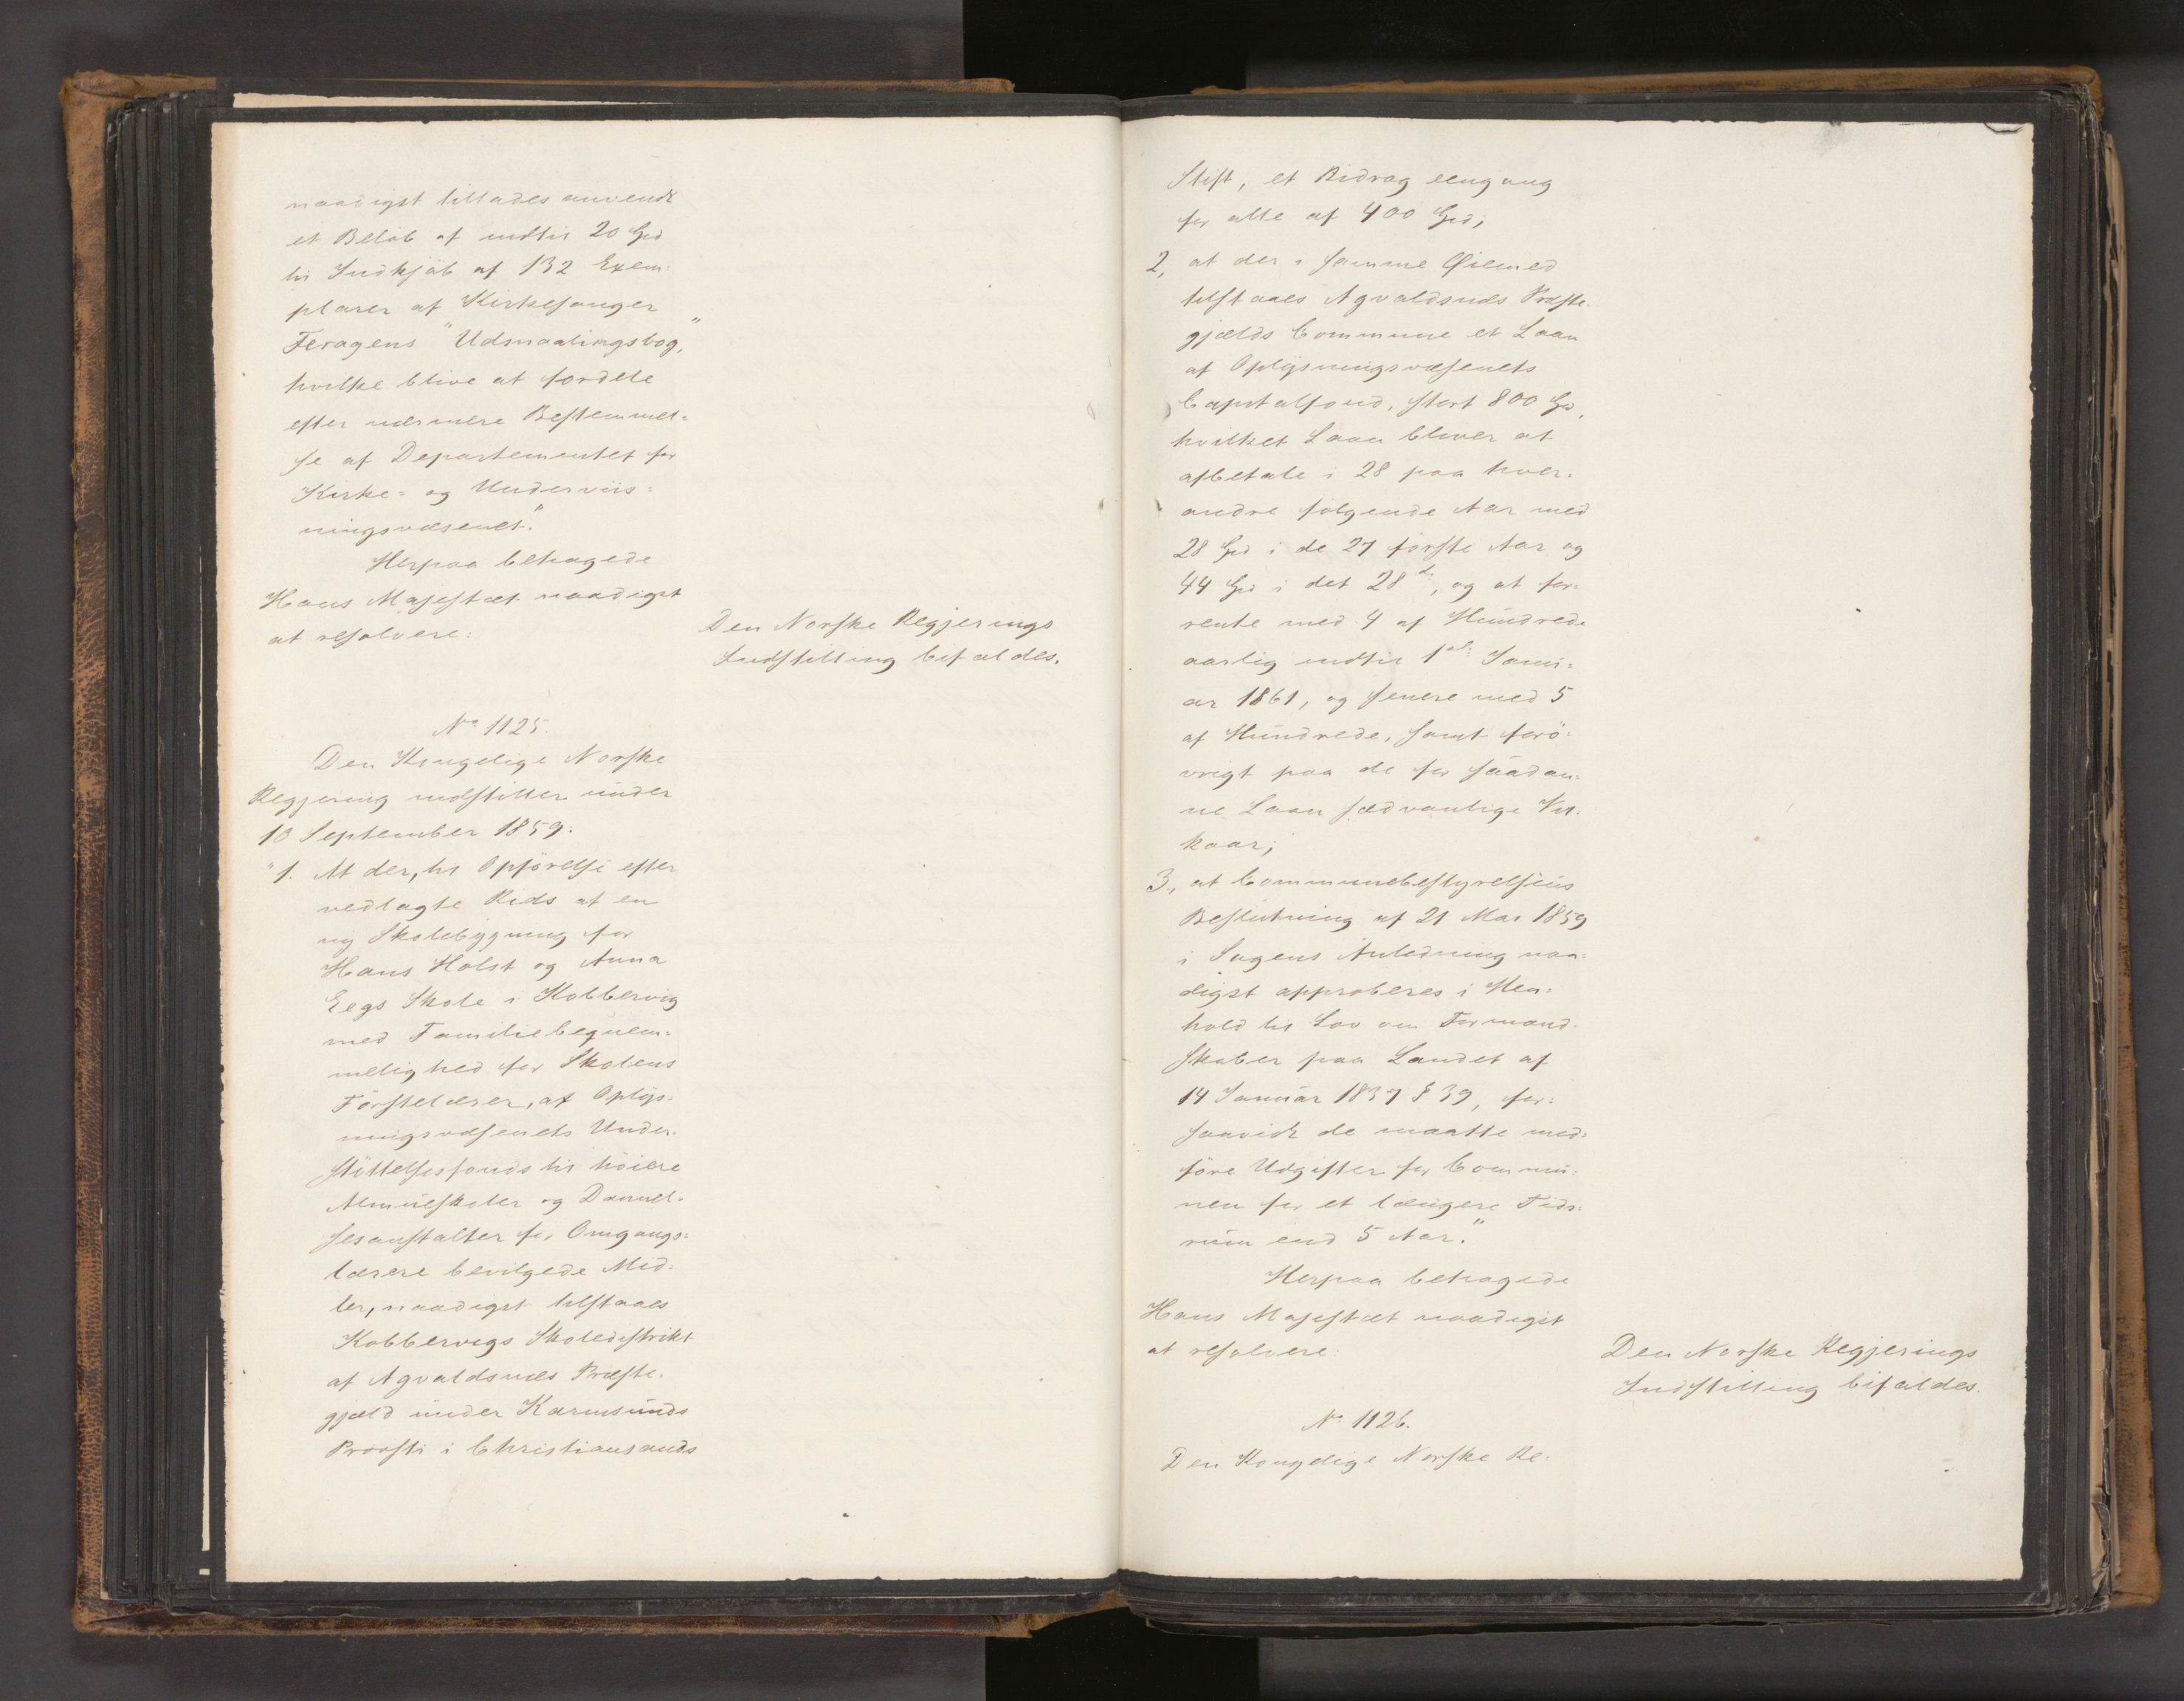 naadigst tillades anvendt
et Beløb af indtil 20 Spd
til Indkjøb af 132 Exem-
plarer af Kirkesanger
Feragens "Udmaalingsbog,"
hvilke blive at fordele
efter nærmere Bestemmel-
se af Departementet for
Kirke- og Underviis-
ningsvæsenet."
Herpaa behagede
Hans Majestæt naadigst
at resolvere:
Den Norske Regjerings
Indstilling bifaldes.
No 1125.
Den Kongelige Norske
Regjering indstiller under
10 September 1859:
"1. At der, til Opførelse efter
vedlagte Rids af en
ny Skolebygning for
Hans Holst og Anna
Eegs Skole i Kobbervig
med Familiebequem-
melighed for Skolens
Førstelærer, af Oplys-
ningsvæsenets Under-
støttelsesfonds til høiere
Almueskoler og Dannel-
sesanstalter for Omgangs-
lærere bevilgede Mid-
ler, naadigst tilstaaes
Kobbervigs Skoledistrikt
af Agvaldsnæs Præste-
gjæld under Karmsunds
Provsti i Christiansands
Stift, et Bidrag eengang
for alle af 400 Spd;
2, at der i samme Øiemed
tilstaaes Agvaldsnæs Præste-
gjælds Commune et Laan
af Oplysningsvæsenets
Capitalfond, stort 800 Spd,
hvilket Laan bliver at
afbetale i 28 paa hver-
andre følgende Aar med
28 Spd i de 27 første Aar og
44 Spd i det 28de, og at for-
rente med 4 af Hundrede
aarlig indtil 1ste Janu-
ar 1861, og senere med 5
af Hundrede, samt forø-
vrigt paa de for saadan-
ne Laan sædvanlige Vil-
kaar;
3, at Communebestyrelsens
Beslutning af 21 Mai 1859
i Sagens Anledning naa-
digst approberes i Hen-
hold til Lov om Formand-
skaber paa Landet af
14 Januar 1837 § 39, for-
saavidt de maatte med-
føre Udgifter for Commu-
nen for et længere Tids-
rum end 5 Aar."
Herpaa behagede
Hans Majestæt naadigst
at resolvere:
Den Norske Regjerings
Indstilling bifaldes.
No 1126.
Den Kongelige Norske Re-